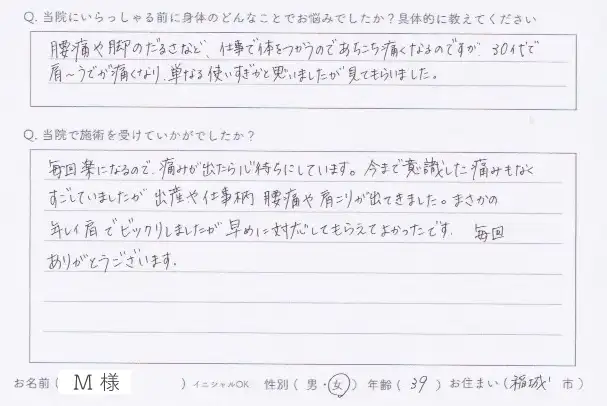 Q. 当院にいらっしゃる前に身体のどんなことでお悩みでしたか？具体的に教えてください
腰痛や脚のだるさなど、仕事で体をつかうのであちこち痛くなるのですが、30代で
肩〜うでが痛くなり、単なる使いすぎかと思いましたが見てもらいました。
Q. 当院で施術を受けていかがでしたか？
毎回楽になるので、痛みが出たら心待ちにしています。今まで意識した痛みもなく
すごしていましたが 出産や仕事柄 腰痛や肩こりが出てきました。まさかの
年しく肩でビックリしましたが 早めに対応してもらえてよかったです。 毎回
ありがとうございます。
お名前（ M 様 ）イニシャルOK 性別（ 男・女 ）年齢（ 39 ）お住まい（ 稲城 市 ）